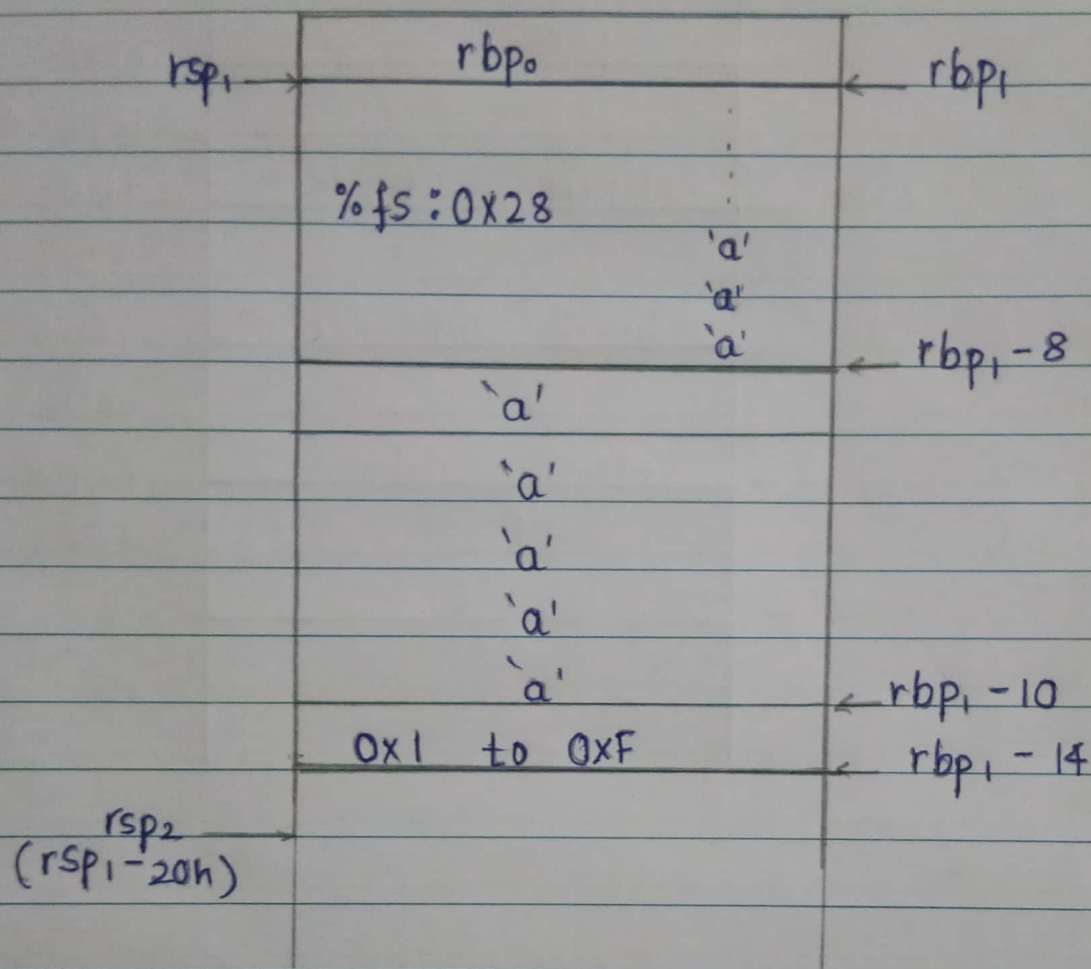 rbp₀
rsp₁ rbp₁
%fs:0x28
'a'
'a'
'a'
rbp₁-8
'a'
'a'
'a'
'a'
'a'
rbp₁-10
0x1 to 0xF
rbp₁-14
rsp₂
(rsp₁-20h)